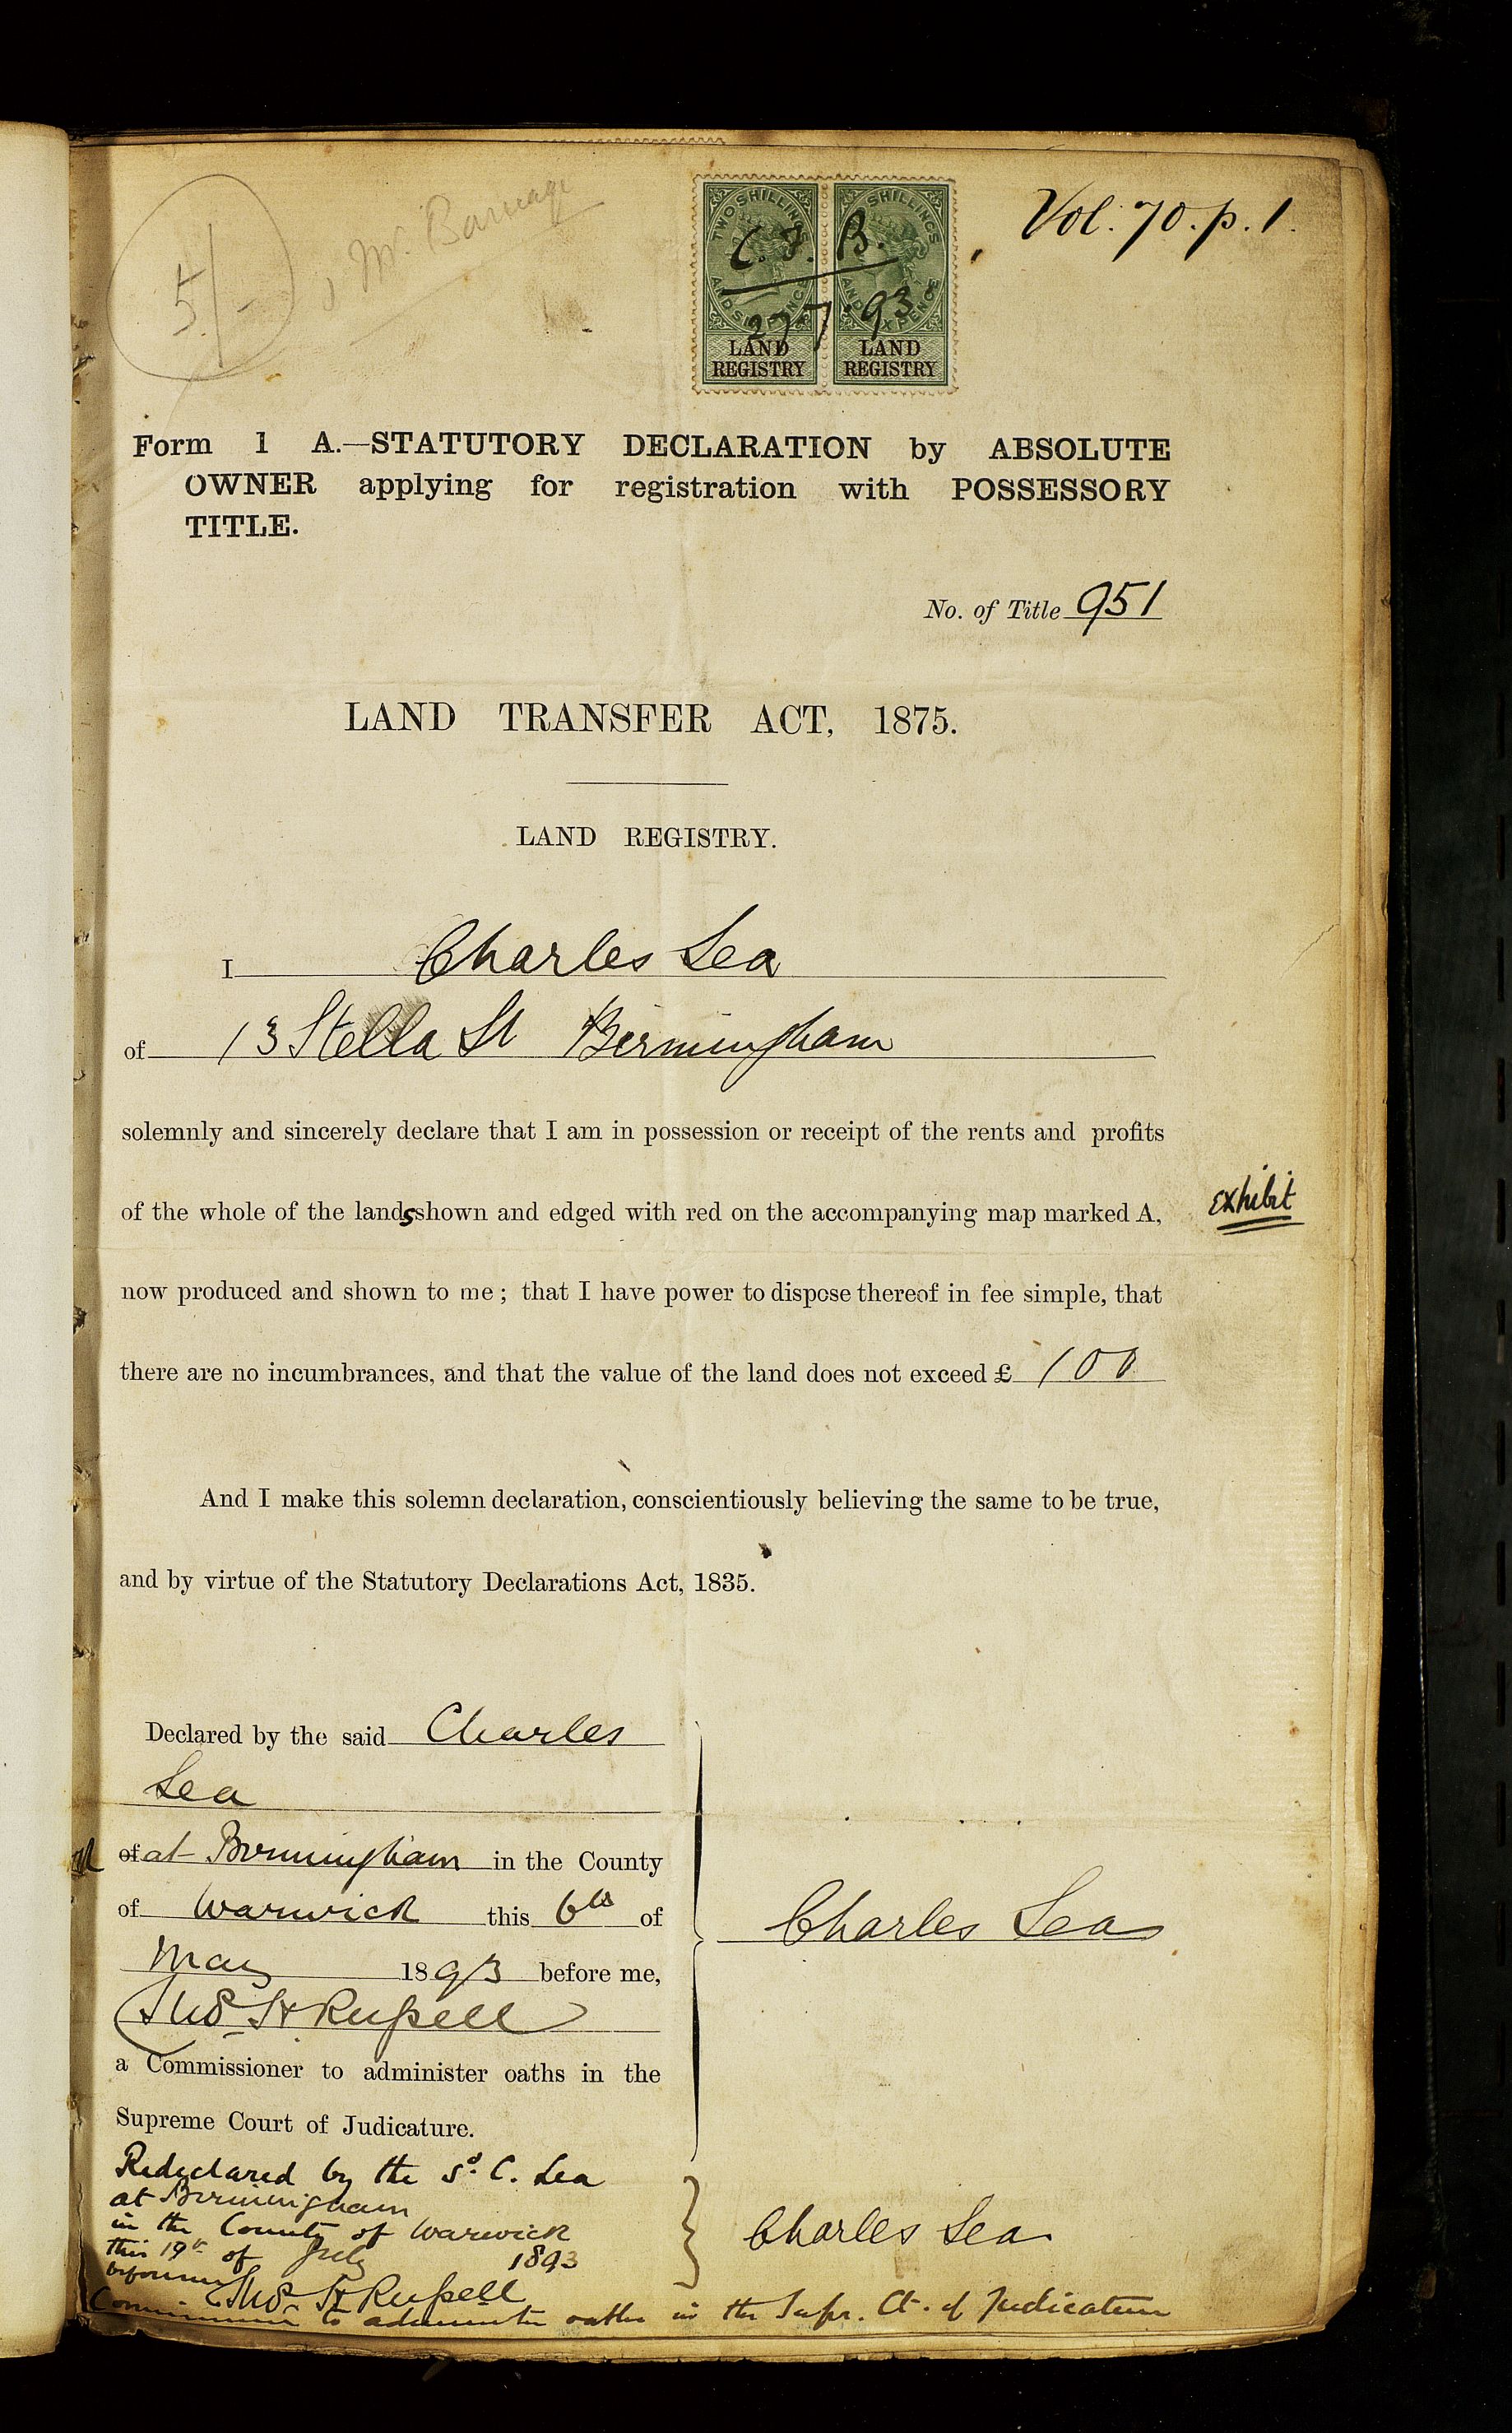 5/-
Mr. Barnage
Vol. 70. p. 1.
TWO SHILLINGS AND SIX PENCE
SHILLINGS AND SIX PENCE
C. J. B.
27.7.93
LAND REGISTRY
LAND REGISTRY
Form 1 A.—STATUTORY DECLARATION by ABSOLUTE
OWNER applying for registration with POSSESSORY
TITLE.
No. of Title 951
LAND TRANSFER ACT, 1875.
LAND REGISTRY.
I Charles Lea
of 13 Stella St Birmingham
solemnly and sincerely declare that I am in possession or receipt of the rents and profits
of the whole of the lands shown and edged with red on the accompanying map marked A,
Exhibit
now produced and shown to me; that I have power to dispose thereof in fee simple, that
there are no incumbrances, and that the value of the land does not exceed £ 100
And I make this solemn declaration, conscientiously believing the same to be true,
and by virtue of the Statutory Declarations Act, 1835.
Declared by the said Charles
Lea
of at Birmingham in the County
of Warwick this 6th of
May 1893 before me,
Thos. H Russell
a Commissioner to administer oaths in the
Supreme Court of Judicature.
Charles Lea
Redeclared by the sd. C. Lea
at Birmingham
in the County of Warwick
this 19th of July 1893
before me
Thos. H Russell
Commissioner to administer oaths in the Supr. Ct. of Judicature
Charles Lea